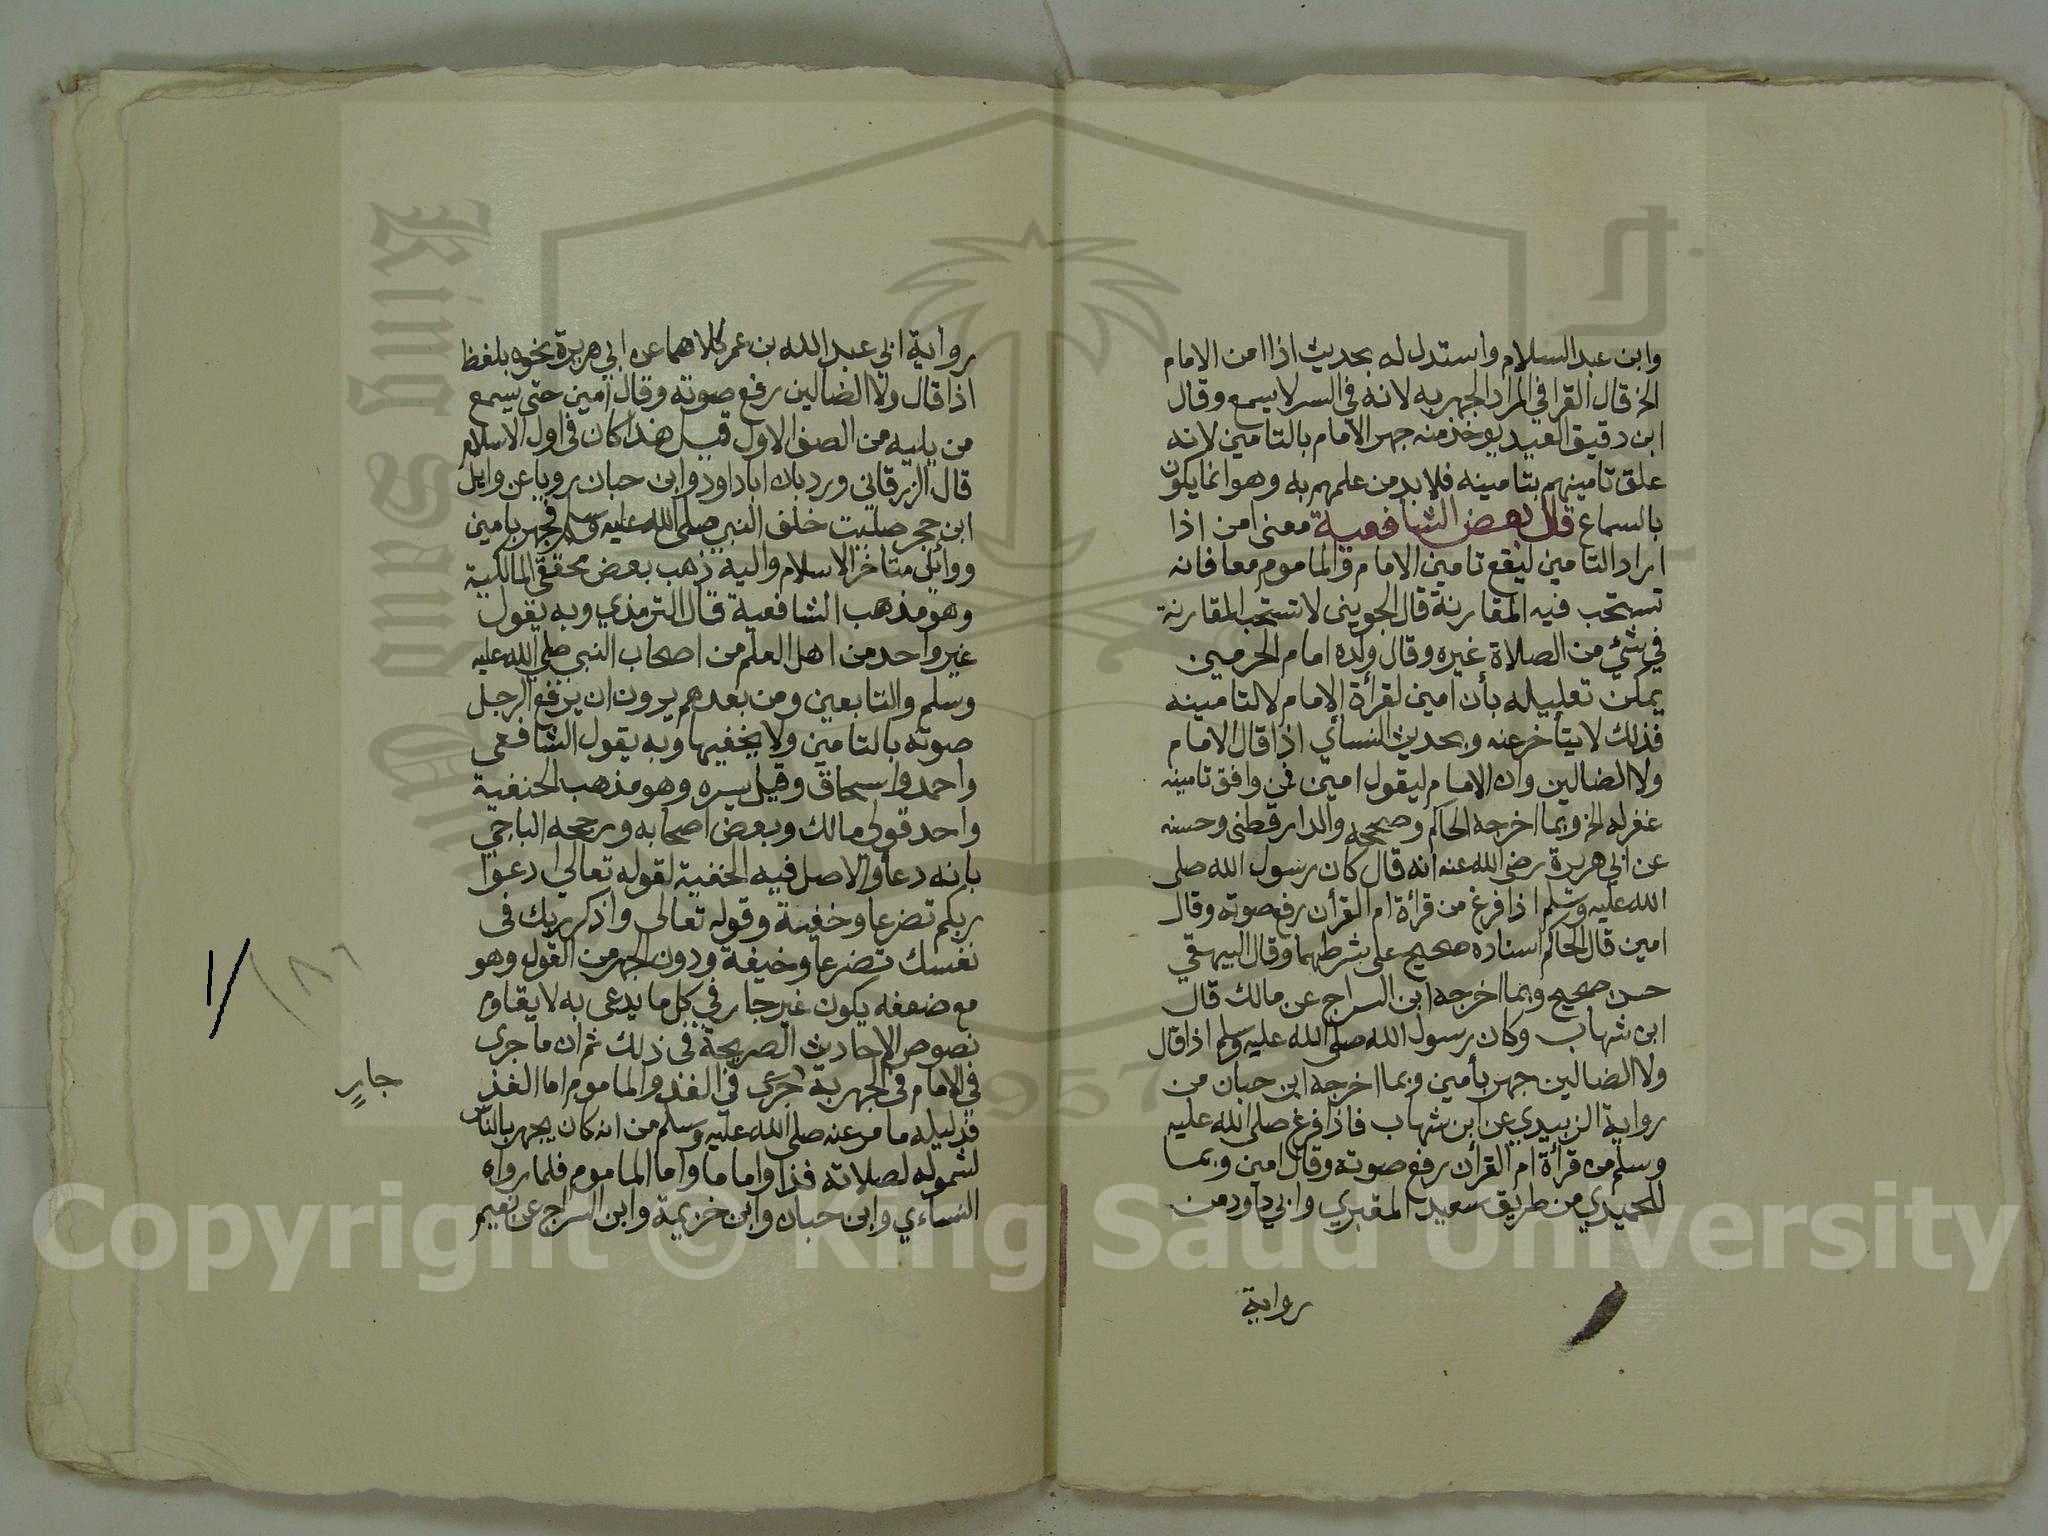 وابن عبد السلام واستدل له بحديث اذا امن الامام
الخ قال القرافي المراد الجهر به لانه في السر لا يسمع وقال
ابن دقيق العيد يوخذ منه جهر الامام بالتامين لانه
علق تامينهم بتامينه فلا بد من علمهم به وهو انما يكون
بالسماع قال بعض الشافعية معنى امن اذا
اراد التامين ليقع تامين الامام والماموم معا فانه
تستحب فيه المقارنة قال الجويني لا تستحب المقارنة
في شئ من الصلاة غيره وقال ولده امام الحرمين
يمكن تعليله بأن امين لقرأة الامام لا لتامينه
فذلك لا يتأخر عنه وبحديث النسأي اذا قال الامام
ولا الضالين وان الامام ليقول امين فمن وافق تامينه
غفر له الخ وبما اخرجه الحاكم وصححه والدارقطني وحسنه
عن ابي هريرة رضي الله عنه انه قال كان رسول الله صلى
الله عليه وسلم اذا فرغ من قرأة ام القرأن رفع صوته وقال
امين قال الحاكم اسناده صحيح على شرطهما وقال البيهقي
حسن صحيح وبما اخرجه ابن السراج عن مالك قال
ابن شهاب وكان رسول الله صلى الله عليه وسلم اذا قال
ولا الضالين جهر بأمين وبما اخرجه ابن حبان من
رواية الزبيدي عن ابن شهاب فاذا فرغ صلى الله عليه
وسلم من قرأة ام القرأن رفع صوته وقال امين وبما
للحميدي من طريق سعيد المقبري وابي داود من
رواية
رواية ابي عبد الله بن عمر كلاهما عن ابي هريرة نحوه بلفظ
اذا قال ولا الضالين رفع صوته وقال امين حتى يسمع
من يليه من الصف الاول قيل هذا كان في اول الاسلام
قال الزرقاني ورد بان ابا داود وابن حبان رويا عن وايل
ابن حجر صليت خلف النبي صلى الله عليه وسلم فجهر بامين
ووائل متاخر الاسلام واليه ذهب بعض محققي المالكية
وهو مذهب الشافعية قال الترمذي وبه يقول
غير واحد من اهل العلم من اصحاب النبي صلى الله عليه
وسلم والتابعين ومن بعدهم يرون ان يرفع الرجل
صوته بالتامين ولا يخفيها وبه يقول الشافعي
واحمد واسحاق وقيل يسره وهو مذهب الحنفية
واحد قولي مالك وبعض اصحابه ورجحه الباجي
بانه دعأ والاصل فيه الخفية لقوله تعالى ادعوا
ربكم تضرعا وخفية وقوله تعالى واذكر ربك في
نفسك تضرعا وخيفة ودون الجهر من القول وهو
مع ضعفه يكون غير جار في كل ما يدعى به لا يقاوم
نصوص الاحاديث الصريحة في ذلك ثم ان ما جرى
في الامام في الجهرية جرى في الفذ والماموم اما الفذ
فدليله ما مر عنه صلى الله عليه وسلم من انه كان يجهر بالناس
لشموله لصلاته فذا واماما واما الماموم فلما رواه
النساءي وابن حبان وابن خزيمة وابن السراج عن نعيم
جابر
١٨
١/
King Saud University
1957
Copyright © King Saud University